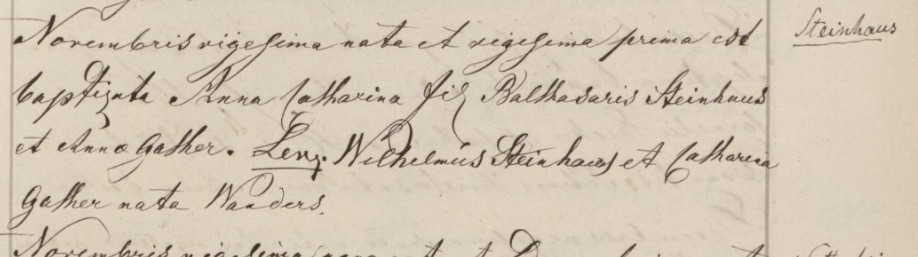 Novembris vigesima nata et vigesima prima est
Steinhaus
baptizata Anna Catharina fil Balthasaris Steinhaus
et Annæ Gather. Levz. Wilhelmus Steinhaus et Catharina
Gather nata Wanders.
Novembris vigesima